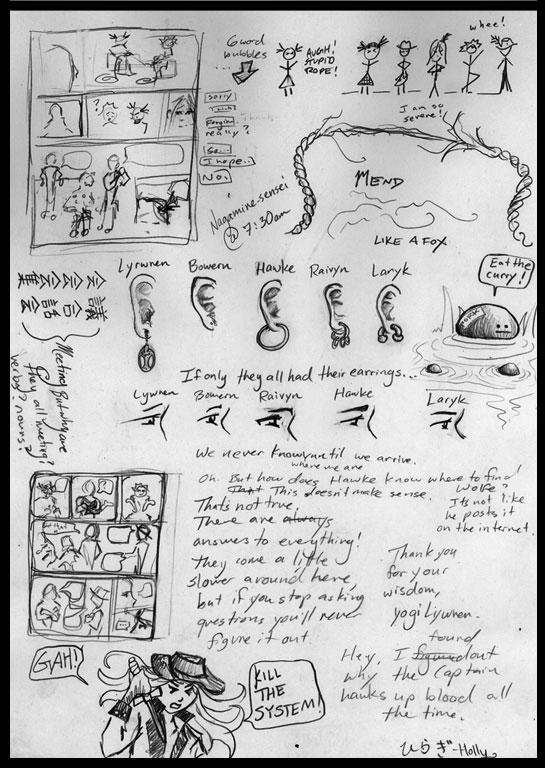 6 word
bubbles
...
AUGH!
STUPID
ROPE!
whee!
sorry
really?
So...
I hope...
No.
I am so
severe!
MEND
LIKE A FOX
Nagamine-sensei
@ 7:30am
Lyrwren
Bowern
Hawke
Raivyn
Laryk
Eat the
curry!
If only they all had their earrings...
Lyrwren
Bowern
Raivyn
Hawke
Laryk
会議
会合
会話
集会
Meeting. But why are
they all meeting?
verbs? nouns?
We never know until we arrive.
where we are
Oh. But how does Hawke know where to find
This doesn't make sense.
Woke?
It's not like
he posts it
on the internet.
That's not true.
There are always
answers to everything!
They come a little
slower around here,
but if you stop asking
questions you'll never
figure it out.
Thank you
for your
wisdom,
yogi Lyrwren.
Hey, I figured found out
why the Captain
hawks up blood all
the time.
GAH!
KILL
THE
SYSTEM!
ひらぎ-Holly